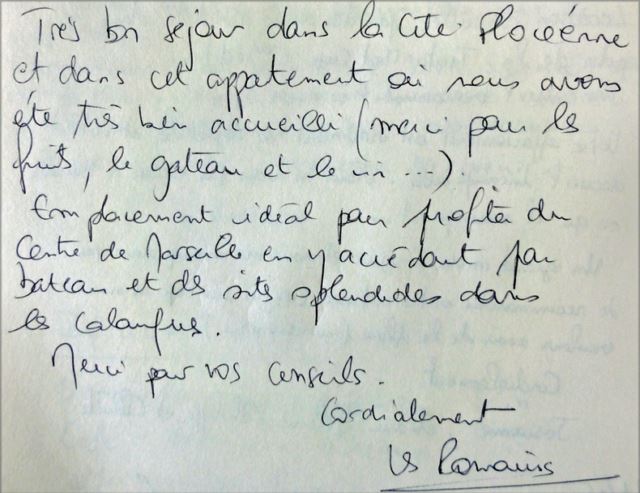 Très bon séjour dans la Cité Phocéenne
et dans cet appartement où nous avons
été très bien accueilli (merci pour les
fruits, le gateau et le vin ...).
Emplacement idéal pour profiter du
Centre de Marseille en y accédant par
bateau et des sites splendides dans
les Calanques.
Merci pour vos conseils.
Cordialement
Les Romains